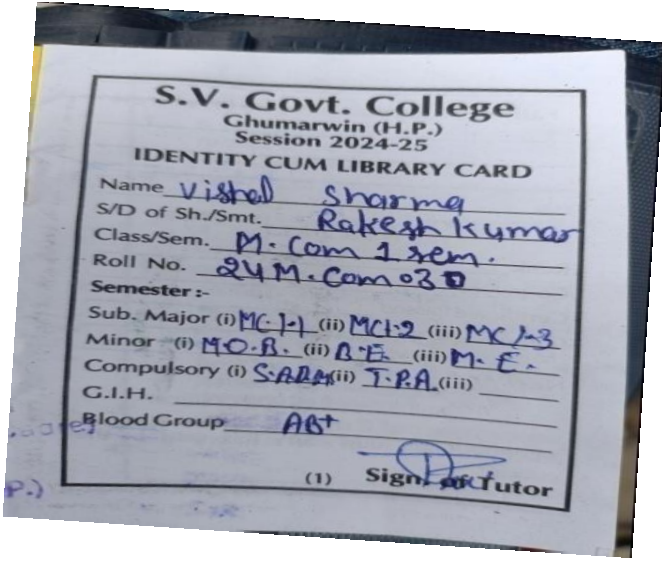 S.V. Govt. College
Ghumarwin (H.P.)
Session 2024-25
IDENTITY CUM LIBRARY CARD
Name Vishal Sharma
S/D of Sh./Smt. Rakesh Kumar
Class/Sem. M.Com 1 sem.
Roll No. 24M.Com030
Semester :-
Sub. Major (i) MC1-1 (ii) MC1-2 (iii) MC1-3
Minor (i) M.O.B. (ii) B.E. (iii) M.E.
Compulsory (i) (ii) T.P.A. (iii)
G.I.H.
Blood Group AB+
(1) Sign. of Tutor
P.)